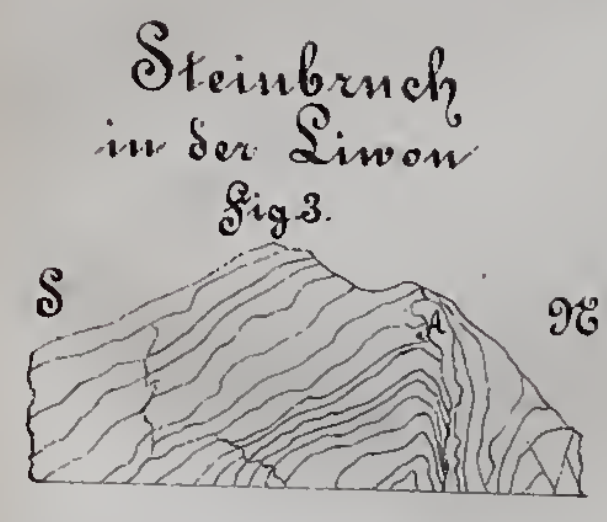 Steinbruch
in der Liwon
Fig 3.
S
N
A